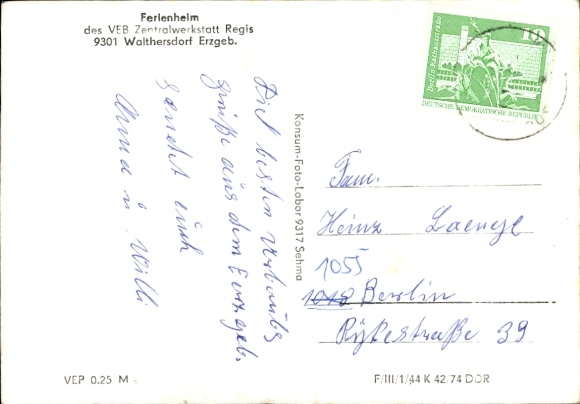 Ferienheim
des VEB Zentralwerkstatt Regis
9301 Walthersdorf Erzgeb.
Die besten Urlaubs
grüße aus dem Erzgeb.
sendet euch
Anna u. Willi
Konsum-Foto-Labor 9317 Sehma
10
Berlin, Rathausstraße
DEUTSCHE DEMOKRATISCHE REPUBLIK
Fam.
Heinz Laenge
1055
1018 Berlin
Rykestraße 39
VEP 0.25 M
F/III/1/44 K 42/74 DDR